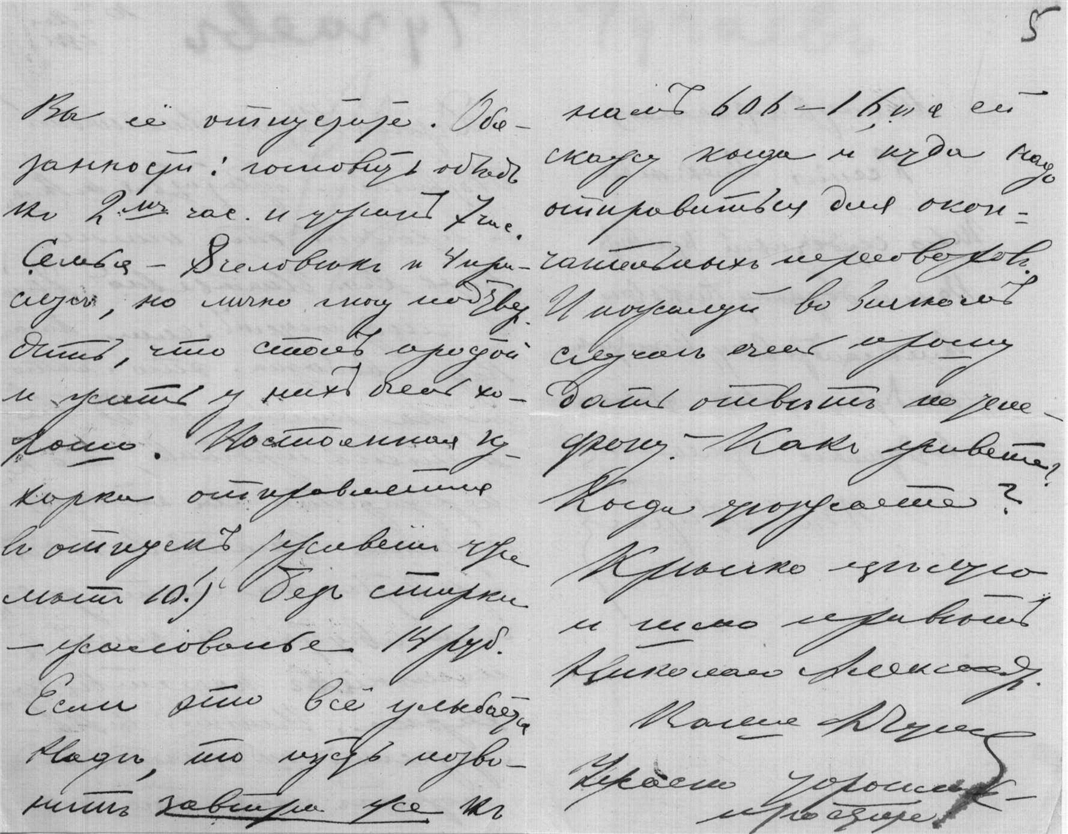 5
Вы её отпустите. Обя-
занности: готовить обѣдъ
къ 2мъ час. и ужинъ 7 час.
Семья – 8 человѣкъ и 4 при-
слуги, но лично могу подтвер-
дить, что столъ простой
и жить у нихъ очень хо-
рошо. Постоянная ку-
харка отправляется
въ отпускъ (живетъ уже
лѣтъ 10!) Безъ стирки
– жалованье 14 руб.
Если это всё улыбается
Надѣ, то пусть позво-
нитъ завтра же къ
намъ 606–16 и я ей
скажу когда и куда надо
отправиться для окон=
чательныхъ переговоровъ.
И пожалуй во всякомъ
случаѣ очень прошу
дать отвѣтъ по теле-
фону. – Какъ живете?
Когда уѣзжаете?
Крѣпко цѣлую
и шлю привѣтъ
Николаю Александр.
Ваша